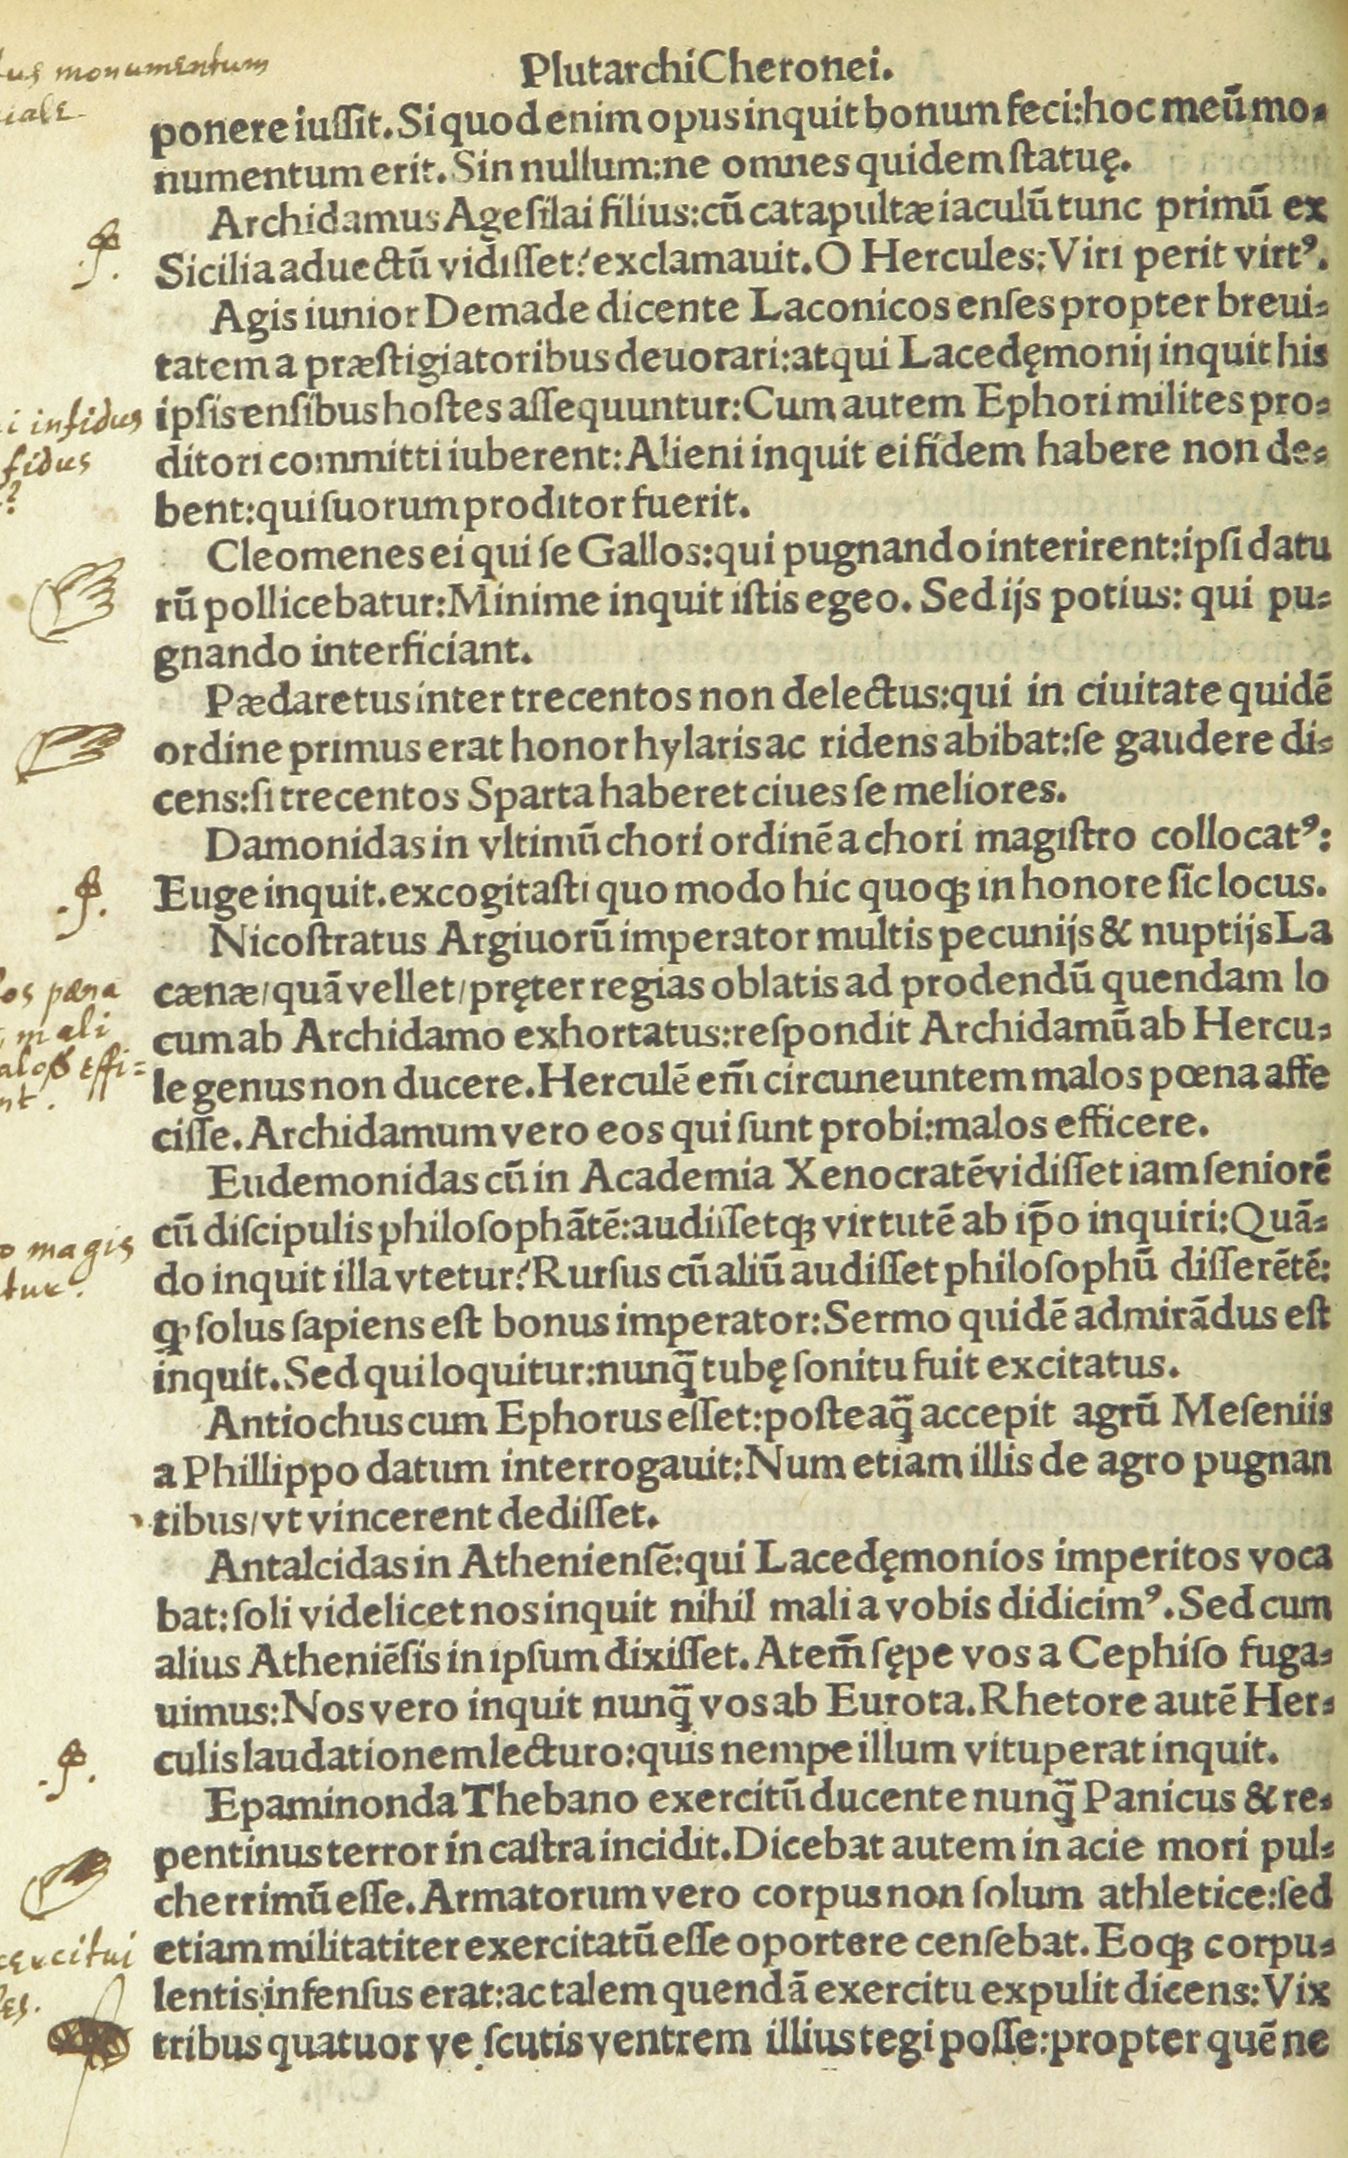 Plutarchi Cheronei.
tus monumentum
iale
ponere iuſſit. Si quod enim opus inquit bonum feci: hoc meū mo-
numentum erit. Sin nullum: ne omnes quidem ſtatuę.
Archidamus Ageſilai filius: cū catapultæ iaculū tunc primū ex
Sicilia aduectū vidiſſet: exclamauit. O Hercules: Viri perit virtꝰ.
Agis iunior Demade dicente Laconicos enſes propter breui-
tatem a præſtigiatoribus deuorari: atqui Lacedęmonij inquit his
ipſis enſibus hoſtes aſſequuntur: Cum autem Ephori milites pro-
i infidus
ditori committi iuberent: Alieni inquit ei fidem habere non de-
fidus
?
bent: qui ſuorum proditor fuerit.
Cleomenes ei qui ſe Gallos: qui pugnando interirent: ipſi datu
rū pollicebatur: Minime inquit iſtis egeo. Sed ijs potius: qui pu-
gnando interficiant.
Pædaretus inter trecentos non delectus: qui in ciuitate quidē
ordine primus erat honor hylaris ac ridens abibat: ſe gaudere di-
cens: ſi trecentos Sparta haberet ciues ſe meliores.
Damonidas in vltimū chori ordinē a chori magiſtro collocatꝰ:
Euge inquit. excogitaſti quo modo hic quoqꝫ in honore ſic locus.
Nicoſtratus Argiuorū imperator multis pecunijs & nuptijs La
cænæ/ quā vellet/ pręter regias oblatis ad prodendū quendam lo
os pæna
cum ab Archidamo exhortatus: reſpondit Archidamū ab Hercu-
mali
le genus non ducere. Herculē em̄ circuneuntem malos pœna affe
alos effi-
nt.
ciſſe. Archidamum vero eos qui ſunt probi: malos efficere.
Eudemonidas cū in Academia Xenocratē vidiſſet iam ſeniorē
cū diſcipulis philoſophātē: audiiſſetqꝫ virtutē ab ip̄o inquiri: Quā-
o magis
do inquit illa vtetur: Rurſus cū aliū audiſſet philoſophū diſſerētē:
tur.
ꝙ ſolus ſapiens eſt bonus imperator: Sermo quidē admirādus eſt
inquit. Sed qui loquitur: nunq̄ tubę ſonitu fuit excitatus.
Antiochus cum Ephorus eſſet: poſteaq̄ accepit agrū Meſeniis
a Phillippo datum interrogauit: Num etiam illis de agro pugnan
tibus/ vt vincerent dediſſet.
Antalcidas in Athenienſē: qui Lacedęmonios imperitos voca
bat: ſoli videlicet nos inquit nihil mali a vobis didicimꝰ. Sed cum
alius Atheniēſis in ipſum dixiſſet. Atem̄ ſępe vos a Cephiſo fuga-
uimus: Nos vero inquit nunq̄ vos ab Eurota. Rhetore autē Her-
culis laudationem lecturo: quis nempe illum vituperat inquit.
Epaminonda Thebano exercitū ducente nunq̄ Panicus & re-
pentinus terror in caſtra incidit. Dicebat autem in acie mori pul-
cherrimū eſſe. Armatorum vero corpus non ſolum athletice: ſed
etiam militatiter exercitatū eſſe oportere cenſebat. Eoqꝫ corpu-
xercitui
lentis infenſus erat: ac talem quendā exercitu expulit dicens: Vix
es.
tribus quatuor ve ſcutis ventrem illius tegi poſſe: propter quē ne